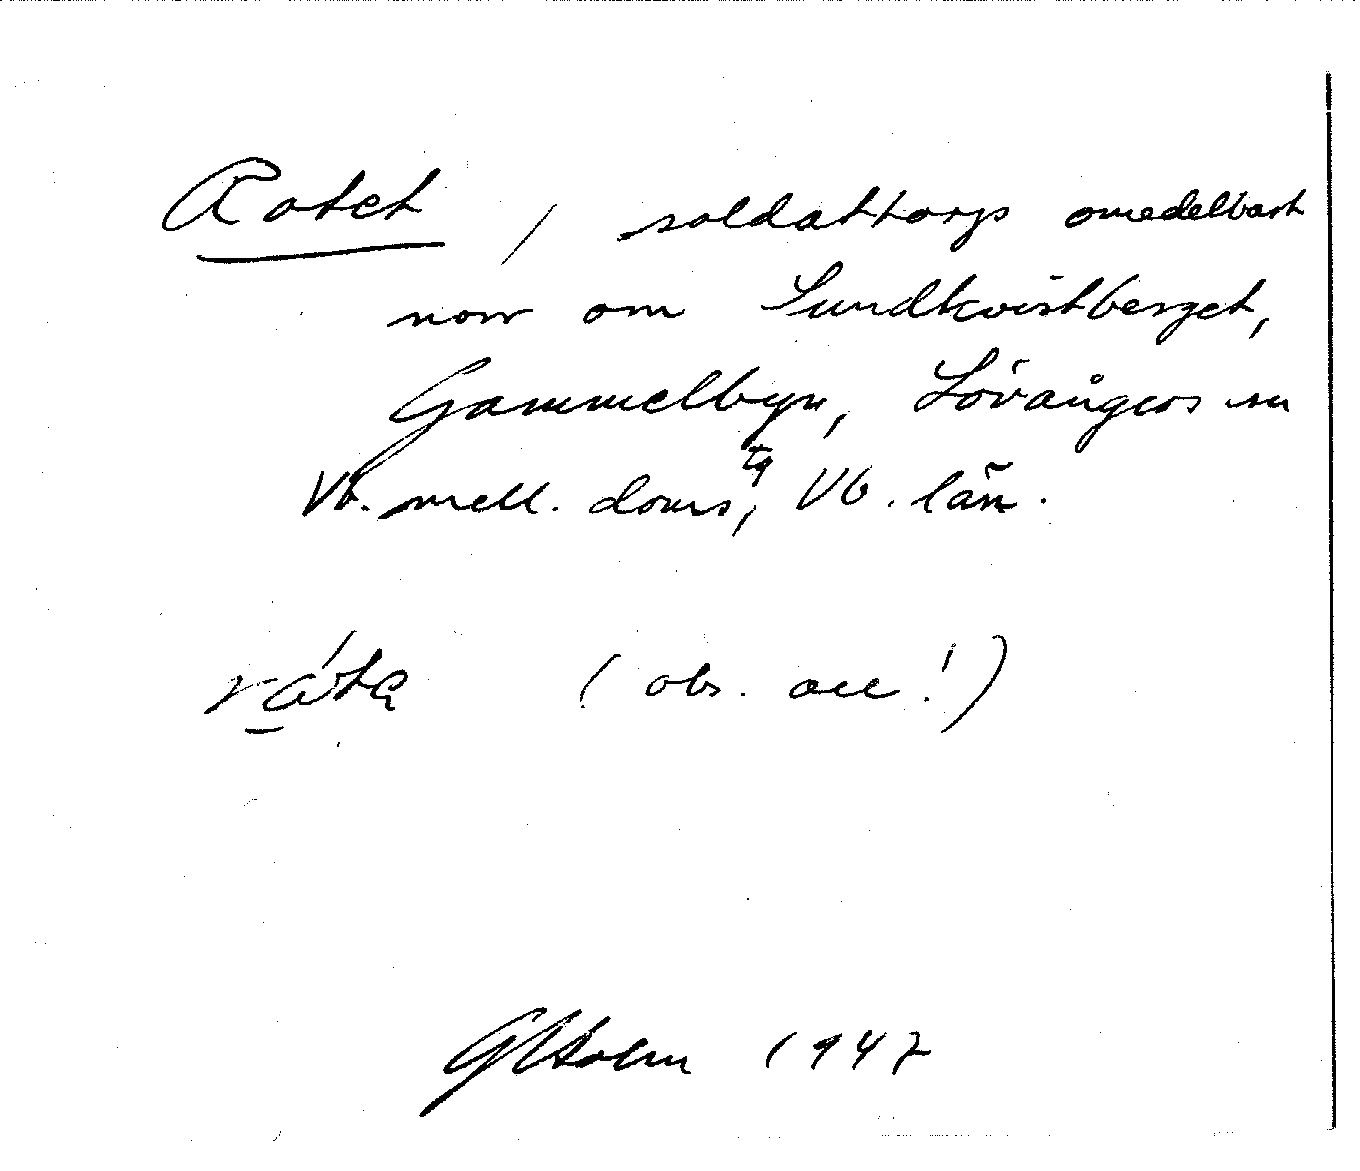 Rotet / soldattorp omedelbart
norr om Sundkvistberget,
Gammelbyn, Lövångers sn
Vb. mell. doms. tg, Vb. län.
rátę (obs. acc!)
GHolm 1947